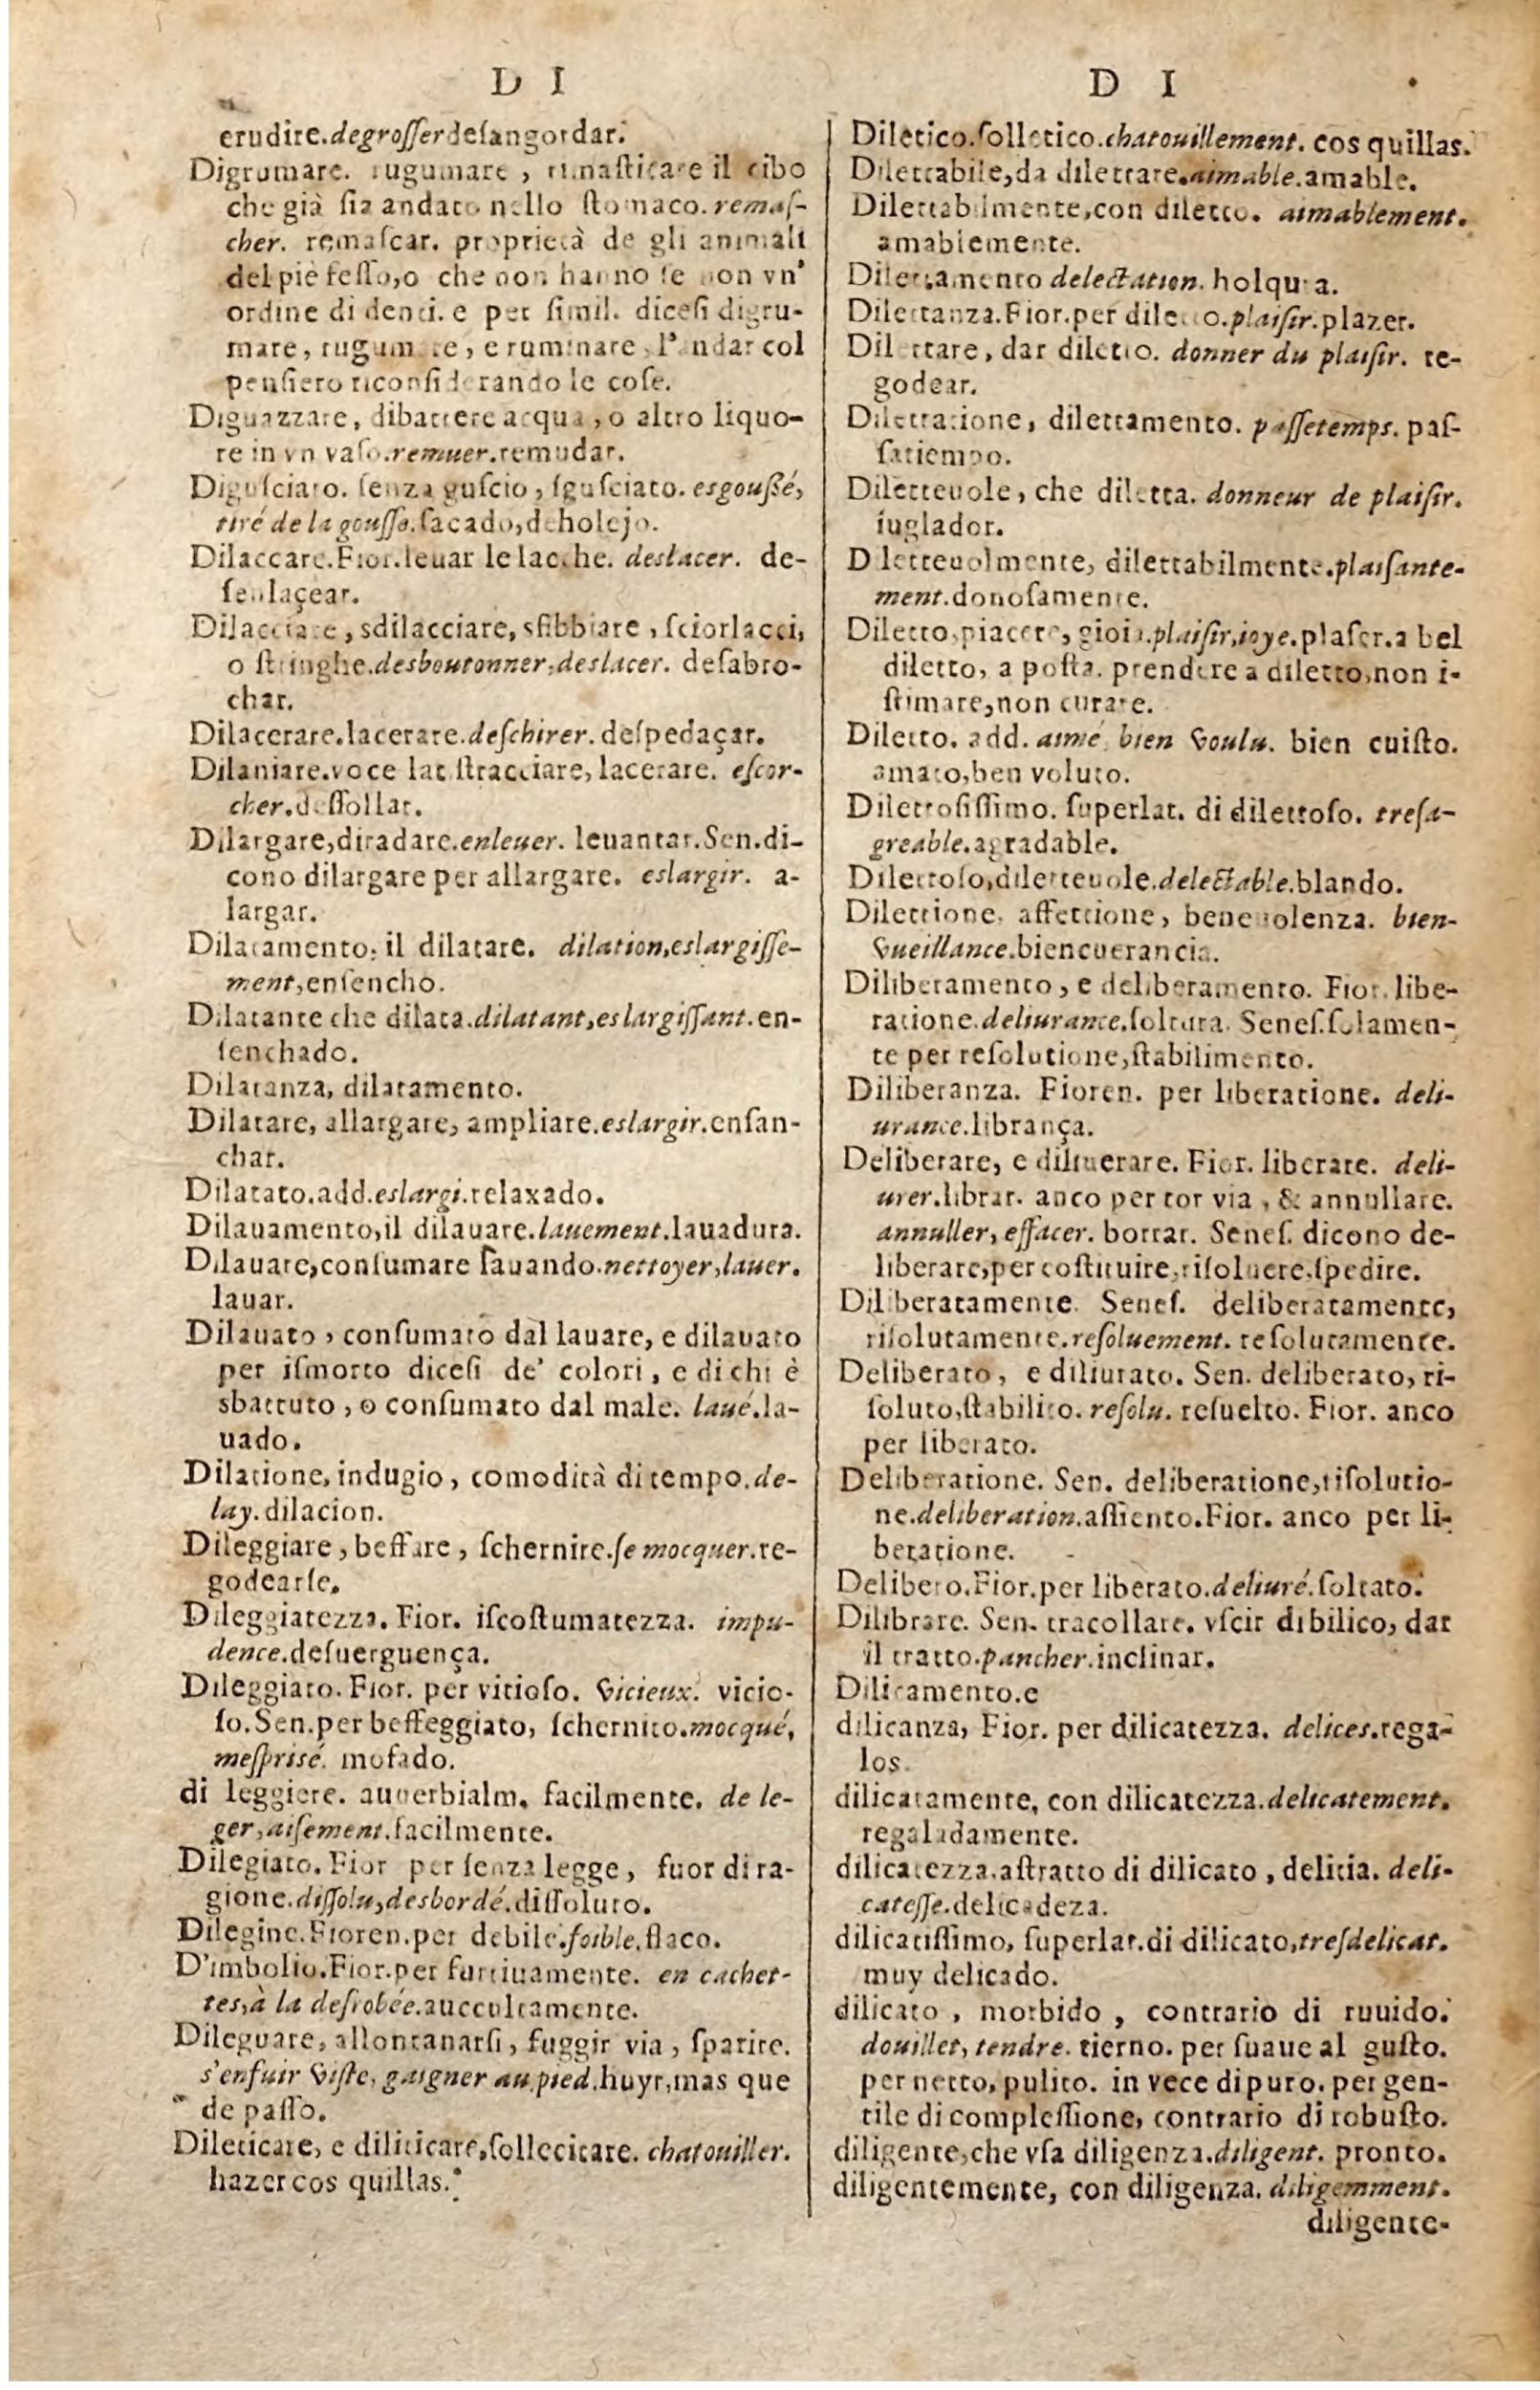 D I
erudire.degroſſer deſangordar.
Digrumare. rugumare, rimaſticare il cibo
che già ſia andato nello ſtomaco. remaſ-
cher. remaſcar. proprietà de gli animali
del piè feſſo,o che non hanno ſe non vn'
ordine di denti. e per ſimil. diceſi digru-
mare, rugumare, e ruminare, l'andar col
penſiero riconſiderando le coſe.
Diguazzare, dibattere acqua, o altro liquo-
re in vn vaſo.remuer.remudar.
Diguſciato. ſenza guſcio, ſguſciato. esgoußé,
tiré de la gouſſe.ſacado,deholejo.
Dilaccare.Fior.leuar le lacche. deslacer. de-
ſenlaçear.
Dilacciare, sdilacciare, sfibbiare, ſciorlacci,
o ſtringhe.desboutonner,deslacer. deſabro-
char.
Dilacerare.lacerare.deſchirer. deſpedaçar.
Dilaniare.voce lat.ſtracciare, lacerare. eſcor-
cher.deſſollar.
Dilargare,diradare.enleuer. leuantar.Sen.di-
cono dilargare per allargare. eslargir. a-
largar.
Dilatamento: il dilatare. dilation,eslargiſſe-
ment,enſencho.
Dilatante che dilata.dilatant,eslargiſſant.en-
ſenchado.
Dilatanza, dilatamento.
Dilatare, allargare, ampliare.eslargir.enſan-
char.
Dilatato.add.eslargi.relaxado.
Dilauamento,il dilauare.lauement.lauadura.
Dilauare,conſumare lauando.nettoyer,lauer.
lauar.
Dilauato, conſumato dal lauare, e dilauato
per iſmorto diceſi de' colori, e di chi è
sbattuto, o conſumato dal male. laué.la-
uado.
Dilatione, indugio, comodità di tempo.de-
lay.dilacion.
Dileggiare, beffare, ſchernire.ſe mocquer.re-
godearſe.
Dileggiatezza. Fior. iſcoſtumatezza. impu-
dence.deſuerguença.
Dileggiato. Fior. per vitioſo. vicieux. vicio-
ſo.Sen.per beffeggiato, ſchernito.mocqué,
meſprisé. mofado.
di leggiere. auuerbialm. facilmente. de le-
ger,aiſement.facilmente.
Dilegiato. Fior per ſenza legge, fuor di ra-
gione.diſſolu,desbordé.diſſoluto.
Dilegine.Fioren.per debile.foible.flaco.
D'imbolio.Fior.per furtiuamente. en cachet-
tes,à la deſrobée.auccultamente.
Dileguare, allontanarſi, fuggir via, ſparire.
s'enfuir viſte, gaigner au pied.huyr,mas que
de paſſo.
Dileticare, e diliticare,ſollecitare. chatouiller.
hazer cos quillas.
D I
Diletico.ſolletico.chatouillement. cos quillas.
Dilettabile,da dilettare.aimable.amable.
Dilettabilmente,con diletto. aimablement.
amablemente.
Dilettamento delectation. holqura.
Dilettanza.Fior.per diletto.plaiſir.plazer.
Dilettare, dar diletto. donner du plaiſir. re-
godear.
Dilettatione, dilettamento. paſſetemps. paſ-
ſatiempo.
Diletteuole, che diletta. donneur de plaiſir.
iuglador.
Diletteuolmente, dilettabilmente.plaiſante-
ment.donoſamente.
Diletto,piacere, gioia.plaiſir,ioye.plaſer.a bel
diletto, a poſta. prendere a diletto,non i-
ſtimare,non curare.
Diletto. add. aimé, bien voulu. bien cuiſto.
amato,ben voluto.
Dilettoſiſſimo. ſuperlat. di dilettoſo. treſa-
greable.agradable.
Dilettoſo,diletteuole.delectable.blando.
Dilettione, affettione, beneuolenza. bien-
vueillance.biencuerancia.
Diliberamento, e deliberamento. Fior. libe-
ratione.deliurance.ſoltura. Seneſ.ſolamen-
te per reſolutione,ſtabilimento.
Diliberanza. Fioren. per liberatione. deli-
urance.librança.
Deliberare, e diliuerare. Fior. liberare. deli-
urer.librar. anco per tor via, & annullare.
annuller, effacer. borrar. Seneſ. dicono de-
liberare,per coſtituire,riſoluere,ſpedire.
Diliberatamente. Seneſ. deliberatamente,
riſolutamente.reſoluement. reſolutamente.
Deliberato, e diliurato. Sen. deliberato, ri-
ſoluto,ſtabilito. reſolu. reſuelto. Fior. anco
per liberato.
Deliberatione. Sen. deliberatione,riſolutio-
ne.deliberation.aſſiento.Fior. anco per li-
beratione.
Delibero.Fior.per liberato.deliuré.ſoltato.
Dilibrare. Sen. tracollare. vſcir di bilico, dar
il tratto.pancher.inclinar.
Dilicamento.e
dilicanza, Fior. per dilicatezza. delices.rega-
los.
dilicatamente, con dilicatezza.delicatement.
regaladamente.
dilicatezza.aſtratto di dilicato, delitia. deli-
cateſſe.delicadeza.
dilicatiſſimo, ſuperlat.di dilicato,treſdelicat.
muy delicado.
dilicato, morbido, contrario di ruuido.
douillet, tendre. tierno. per ſuaue al guſto.
per netto, pulito. in vece di puro. per gen-
tile di compleſſione, contrario di robuſto.
diligente,che vſa diligenza.diligent. pronto.
diligentemente, con diligenza. diligemment.
diligente-